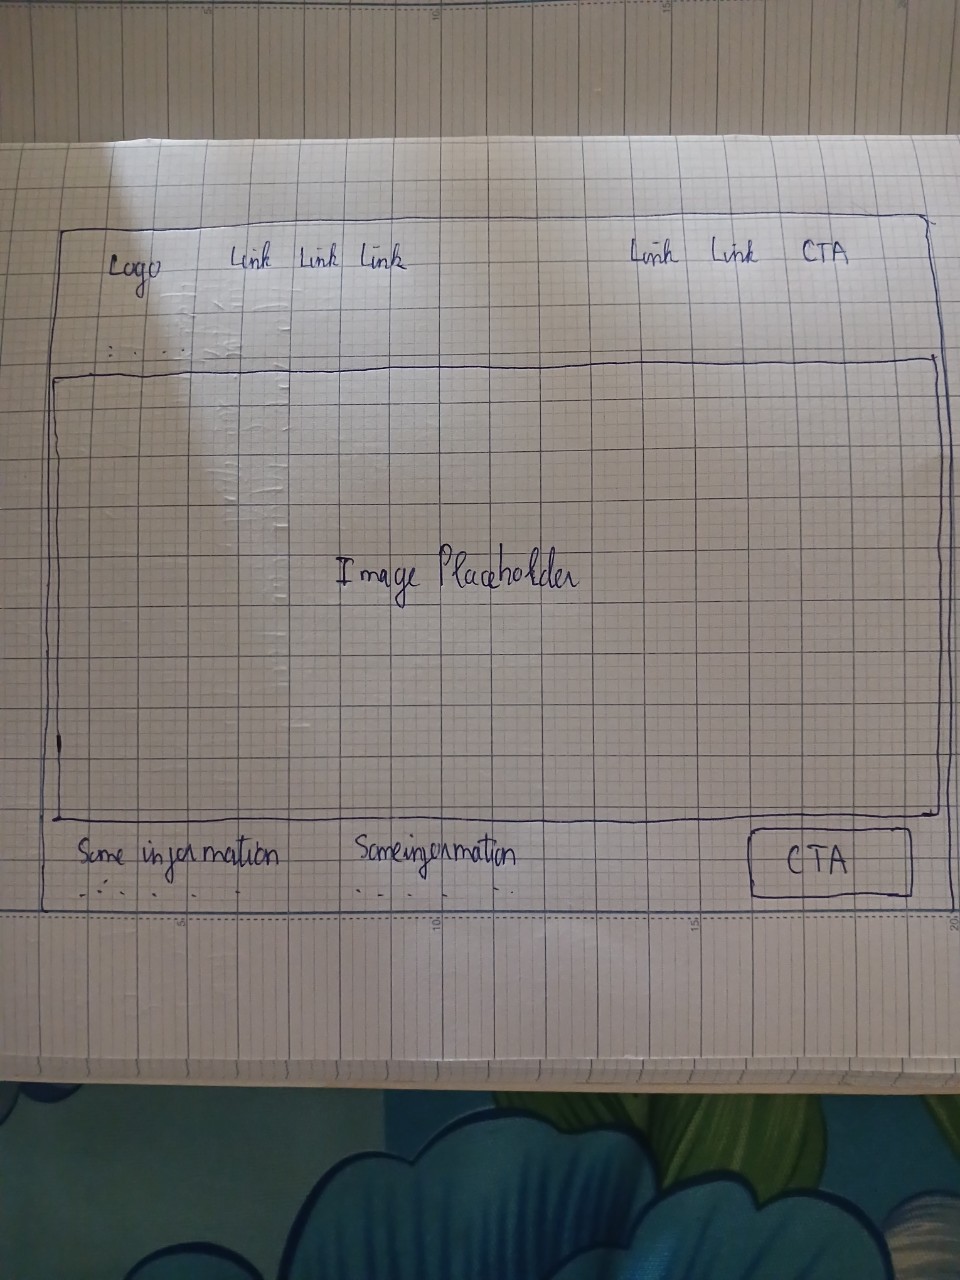 5 10 15
Logo Link Link Link Link Link CTA
Image Placeholder
Some information Some information CTA
5 10 15 20